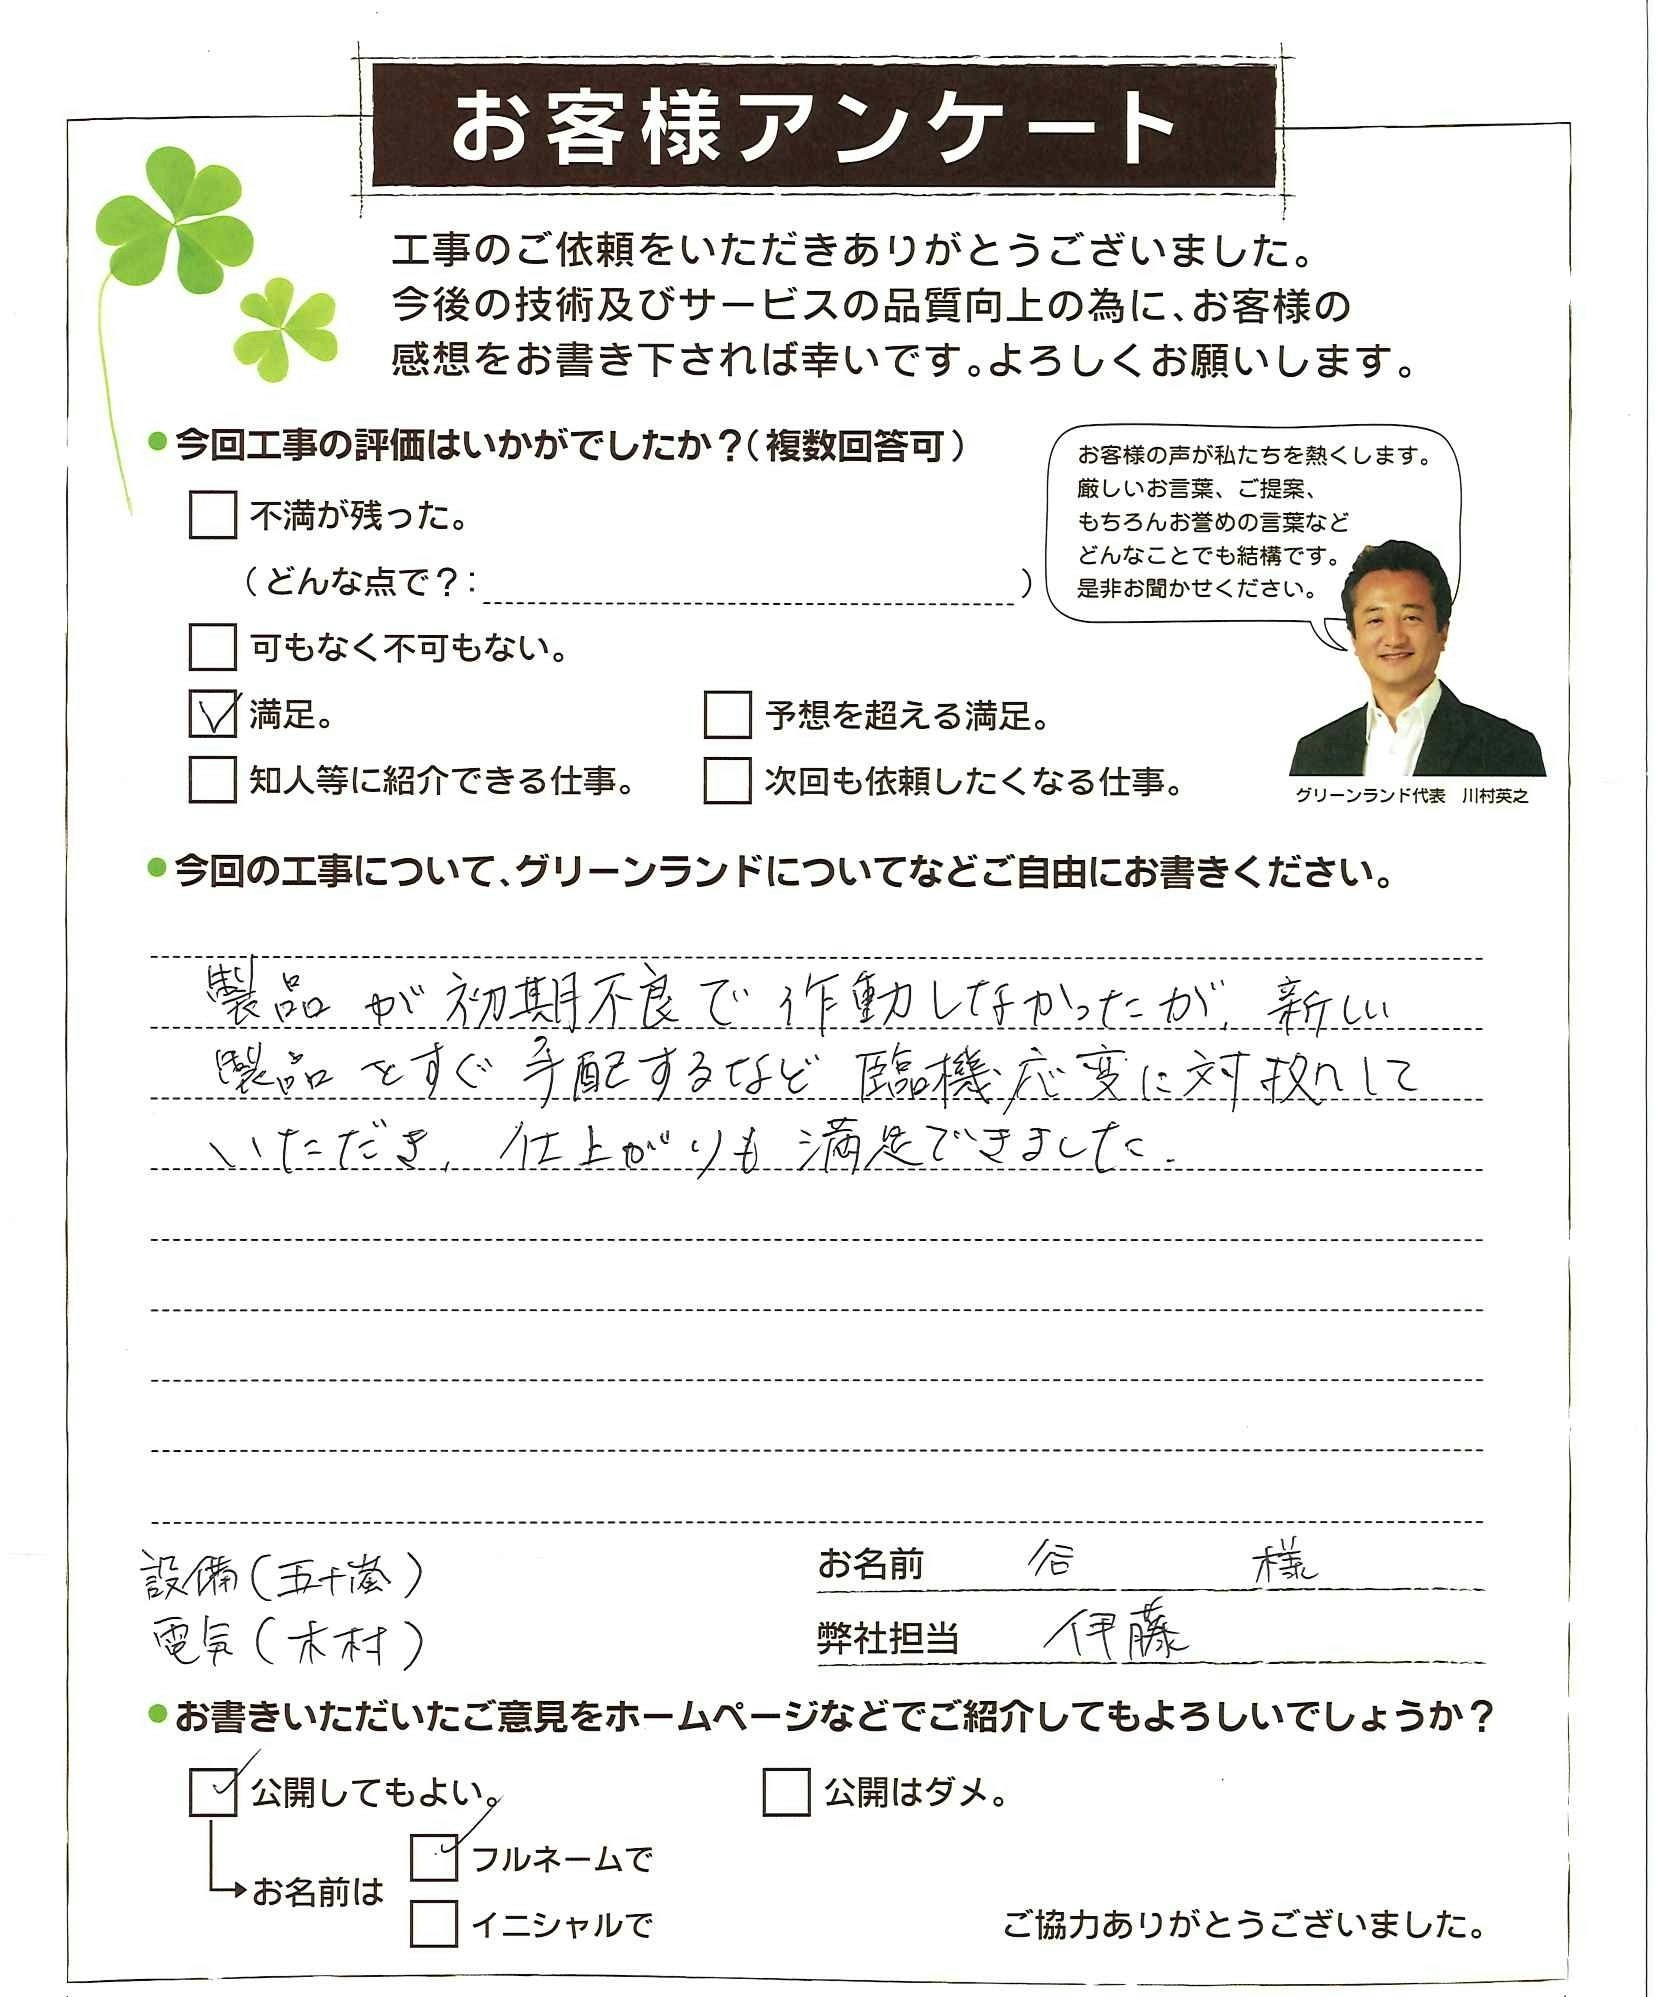 お客様アンケート
工事のご依頼をいただきありがとうございました。
今後の技術及びサービスの品質向上の為に、お客様の
感想をお書き下されば幸いです。よろしくお願いします。
●今回工事の評価はいかがでしたか？(複数回答可)
不満が残った。
(どんな点で？:                    )
可もなく不可もない。
満足。
予想を超える満足。
知人等に紹介できる仕事。
次回も依頼したくなる仕事。
お客様の声が私たちを熱くします。
厳しいお言葉、ご提案、
もちろんお誉めの言葉など
どんなことでも結構です。
是非お聞かせください。
グリーンランド代表　川村英之
●今回の工事について、グリーンランドについてなどご自由にお書きください。
製品が初期不良で作動しなかったが、新しい
製品をすぐ手配するなど臨機応変に対拠して
いただき、仕上がりも満足できました.
設備(五十嵐)
電気(木村)
お名前　谷　様
弊社担当　伊藤
●お書きいただいたご意見をホームページなどでご紹介してもよろしいでしょうか？
公開してもよい。
公開はダメ。
お名前は
フルネームで
イニシャルで
ご協力ありがとうございました。